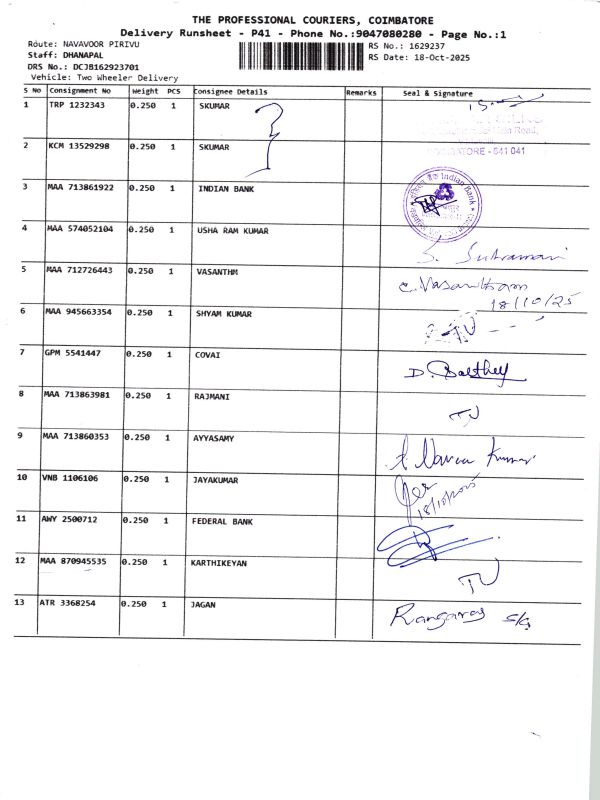 THE PROFESSIONAL COURIERS, COIMBATORE
Delivery Runsheet - P41 - Phone No.:9047080280 - Page No.:1
Route: NAVAVOOR PIRIVU
RS No.: 1629237
Staff: DHANAPAL
RS Date: 18-Oct-2025
DRS No.: DCJB162923701
Vehicle: Two Wheeler Delivery
S No Consignment No Weight PCS Consignee Details Remarks Seal & Signature
1 TRP 1232343 0.250 1 SKUMAR
2 KCM 13529298 0.250 1 SKUMAR
- 641 041
3 MAA 713861922 0.250 1 INDIAN BANK
Indian Bank
4 MAA 574052104 0.250 1 USHA RAM KUMAR
5 MAA 712726443 0.250 1 VASANTHM
C. Vasantham
18/10/25
6 MAA 945663354 0.250 1 SHYAM KUMAR
7 GPM 5541447 0.250 1 COVAI
8 MAA 713863981 0.250 1 RAJMANI
9 MAA 713860353 0.250 1 AYYASAMY
Kumar
10 VNB 1106106 0.250 1 JAYAKUMAR
18/10/2025
11 AWY 2500712 0.250 1 FEDERAL BANK
12 MAA 870945535 0.250 1 KARTHIKEYAN
13 ATR 3368254 0.250 1 JAGAN
Rangaraj